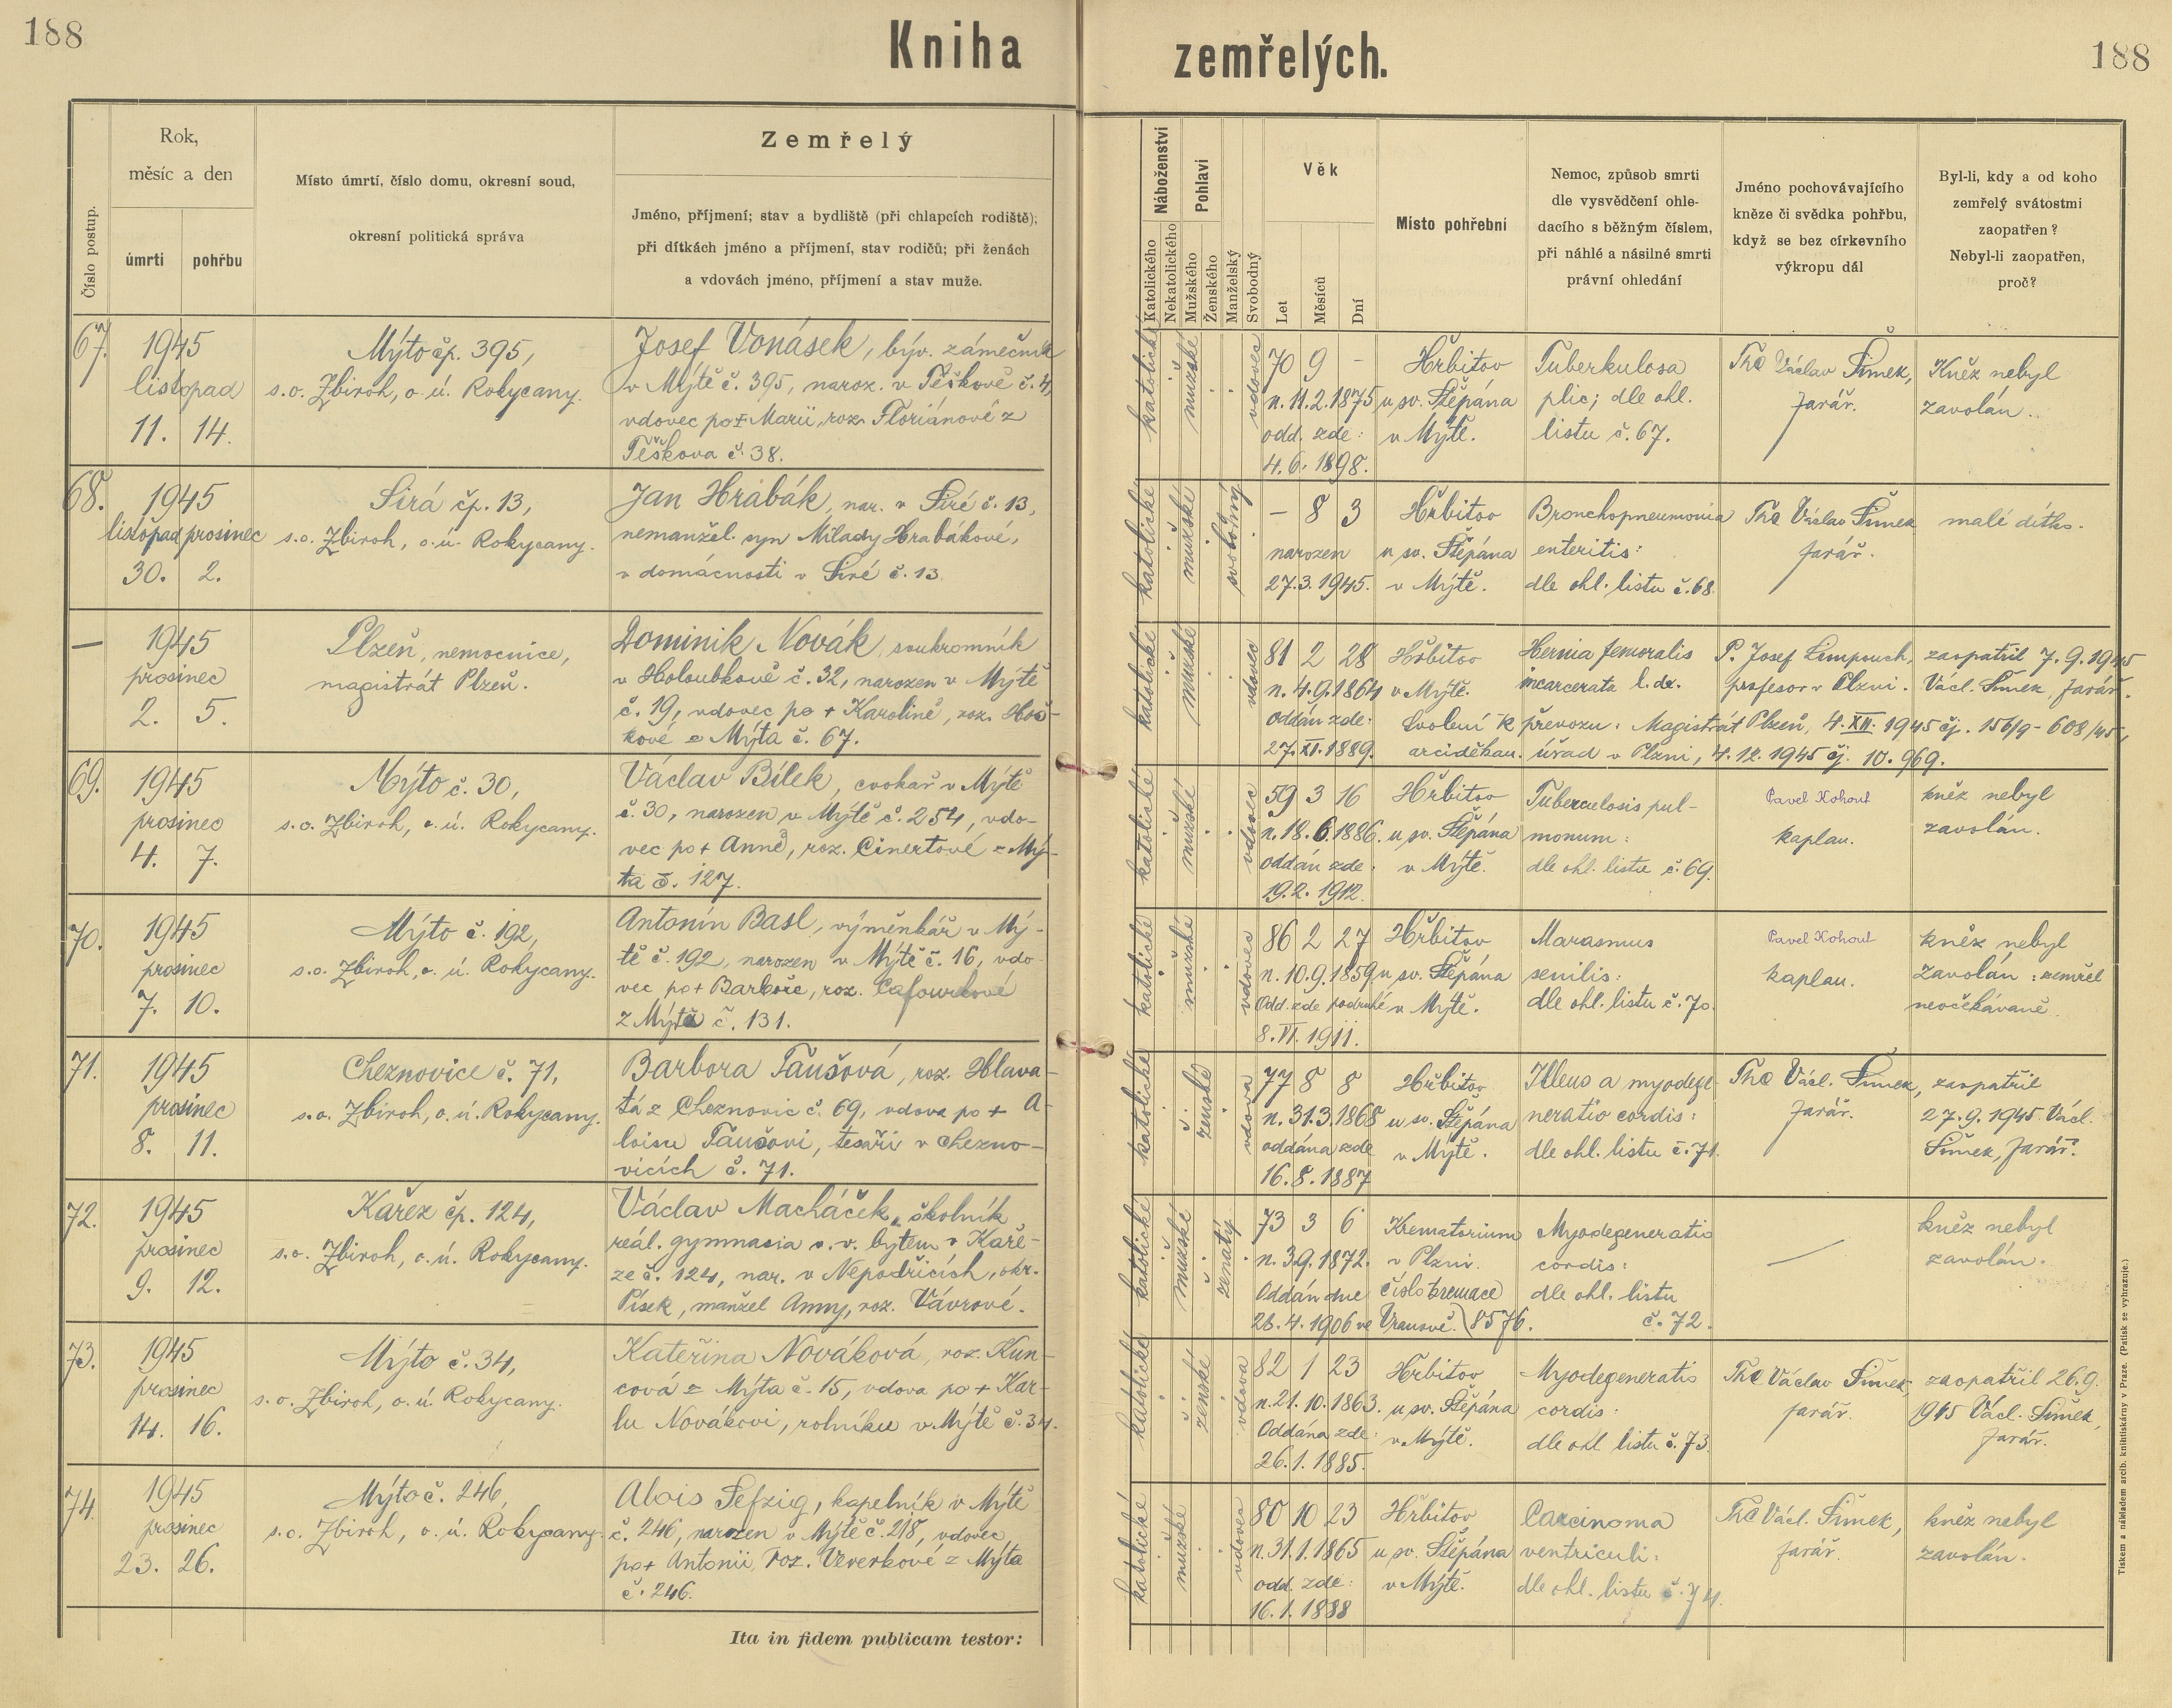 188
Kniha
zemřelých.
188
Číslo postup.
Rok,
měsíc a den
úmrtí
pohřbu
Místo úmrtí, číslo domu, okresní soud,
okresní politická správa
Zemřelý
Jméno, příjmení; stav a bydliště (při chlapcích rodiště);
při dítkách jméno a příjmení, stav rodičů; při ženách
a vdovách jméno, příjmení a stav muže.
Náboženství
Katolického
Nekatolického
Pohlaví
Mužského
Ženského
Manželský
Svobodný
Věk
Let
Měsíců
Dní
Místo pohřební
Nemoc, způsob smrti
dle vysvědčení ohle-
dacího s běžným číslem,
při náhlé a násilné smrti
právní ohledání
Jméno pochovávajícího
kněze či svědka pohřbu,
když se bez církevního
výkropu dál
Byl-li, kdy a od koho
zemřelý svátostmi
zaopatřen?
Nebyl-li zaopatřen,
proč?
67.
1945
listopad
11. 14.
Mýto čp. 395,
s.o. Zbiroh, o.ú. Rokycany.
Josef Vonásek, býv. zámečník
v Mýtě č. 395, naroz. v Těškově č. 4,
vdovec po + Marii, roz. Floriánové z
Těškova č. 38.
katolické
mužské
vdovec
70 9 –
n. 11.2.1875
odd. zde:
4.6.1898.
Hřbitov
u sv. Štěpána
v Mýtě.
Tuberkulosa
plic; dle ohl.
listu č. 67.
Václav Šimek,
farář.
Kněz nebyl
zavolán.
68.
1945
listopad prosinec
30. 2.
Sirá čp. 13,
s.o. Zbiroh, o.ú. Rokycany.
Jan Hrabák, nar. v Siré č. 13,
nemanžel. syn Milady Hrabákové,
v domácnosti v Siré č. 13.
katolické
mužské
svobodný
– 8 3
narozen
27.3.1945.
Hřbitov
u sv. Štěpána
v Mýtě.
Bronchopneumonia
enteritis:
dle ohl. listu č. 68.
Václav Šimek
farář.
malé dítko.
—
1945
prosinec
2. 5.
Plzeň, nemocnice,
magistrát Plzeň.
Dominik Novák, soukromník
v Holoubkově č. 32, narozen v Mýtě
č. 19, vdovec po + Karolině, roz. Hoš-
kové z Mýta č. 67.
katolické
mužské
vdovec
81 2 28
n. 4.9.1864
Oddán zde:
27.XI.1889.
Hřbitov
v Mýtě.
Hernia femoralis
incarcerata l. dx.
P. Josef Limpouch,
profesor v Plzni.
zaopatřil 7.9.1945
Václ. Šimek, farář.
Svolení k převozu: Magistrát Plzeň, 4.XII.1945 čj. 156/9-608/45,
arciděkan. úřad v Plzni, 4.12.1945 čj. 10.969.
69.
1945
prosinec
4. 7.
Mýto č. 30,
s.o. Zbiroh, o.ú. Rokycany.
Václav Bílek, cvokař v Mýtě
č. 30, narozen v Mýtě č. 254, vdo-
vec po + Anně, roz. Cinertové z Mý-
ta č. 127.
katolické
mužské
vdovec
59 3 16
n. 18.6.1886.
Oddán zde:
19.2.1912.
Hřbitov
u sv. Štěpána
v Mýtě.
Tuberculosis pul-
monum:
dle ohl. listu č. 69.
Pavel Kohout
kaplan.
kněz nebyl
zavolán.
70.
1945
prosinec
7. 10.
Mýto č. 192,
s.o. Zbiroh, o.ú. Rokycany.
Antonín Basl, výměnkář v Mý-
tě č. 192, narozen v Mýtě č. 16, vdo-
vec po + Barboře, roz. Cafourkové
z Mýta č. 131.
katolické
mužské
vdovec
86 2 27
n. 10.9.1859
Odd. zde podruhé
8.VI.1911.
Hřbitov
u sv. Štěpána
v Mýtě.
Marasmus
senilis:
dle ohl. listu č. 70.
Pavel Kohout
kaplan.
kněz nebyl
zavolán: zemřel
neočekávaně.
71.
1945
prosinec
8. 11.
Cheznovice č. 71,
s.o. Zbiroh, o.ú. Rokycany.
Barbora Taušová, roz. Hlava-
tá z Cheznovic č. 69, vdova po + A-
loisu Taušovi, tesaři v Chezno-
vicích č. 71.
katolické
ženské
vdova
77 8 8
n. 31.3.1868
oddána zde
16.8.1887
Hřbitov
u sv. Štěpána
v Mýtě.
Illeus a myodege-
neratio cordis:
dle ohl. listu č. 71.
Václ. Šimek,
farář.
zaopatřil
27.9.1945 Václ.
Šimek, farář.
72.
1945
prosinec
9. 12.
Kařez čp. 124,
s.o. Zbiroh, o.ú. Rokycany.
Václav Macháček, školník
reál. gymnasia v.v. bytem v Kaře-
ze č. 124, nar. v Nepodřicích, okr.
Písek, manžel Anny, roz. Vávrové.
katolické
mužské
ženatý
73 3 6
n. 3.9.1872.
Oddán dne
26.4.1906 ve Vranově.
Krematorium
v Plzni.
číslo kremace
8576.
Myodegeneratio
cordis:
dle ohl. listu
č. 72.
—
kněz nebyl
zavolán.
73.
1945
prosinec
14. 16.
Mýto č. 34,
s.o. Zbiroh, o.ú. Rokycany.
Kateřina Nováková, roz. Kun-
cová z Mýta č. 15, vdova po + Kar-
lu Novákovi, rolníku v Mýtě č. 34.
katolické
ženské
vdova
82 1 23
n. 21.10.1863.
Oddána zde:
26.1.1885.
Hřbitov
u sv. Štěpána
v Mýtě.
Myodegeneratio
cordis:
dle ohl. listu č. 73.
Václav Šimek,
farář.
zaopatřil 26.9.
1945 Václ. Šimek,
farář.
74.
1945
prosinec
23. 26.
Mýto č. 246,
s.o. Zbiroh, o.ú. Rokycany.
Alois Sefzig, kapelník v Mýtě
č. 246, narozen v Mýtě č. 218, vdovec
po + Antonii, roz. Veverkové z Mýta
č. 246.
katolické
mužské
vdovec
80 10 23
n. 31.1.1865
odd. zde:
16.1.1888
Hřbitov
u sv. Štěpána
v Mýtě.
Carcinoma
ventriculi:
dle ohl. listu č. 74.
Václ. Šimek,
farář.
kněz nebyl
zavolán.
Ita in fidem publicam testor:
Tiskem a nákladem arcib. knihtiskárny v Praze. (Patisk se vyhrazuje.)